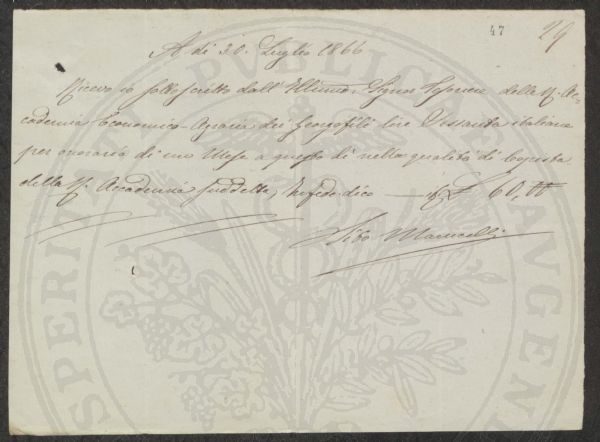 47
29
A dì 30. Luglio 1866
Ricevo io sottoscritto dall'Illmo. Signor Tesoriere della R. Ac-
cademia Economico-Agraria dei Georgofili lire Sessanta italiane
per onorario di un Mese a questo dì nella qualità di Copista
della R. Accademia suddetta, In fede dico £ 60,00
Tito
PUBLICA
SPERITATI
AUGENDAE